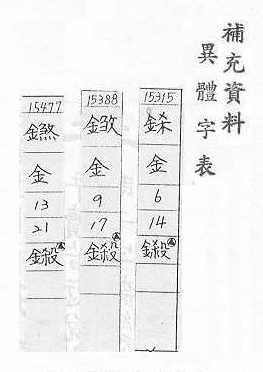 補充資料
異體字表
15315
金
6
14
鎩
15388
金
9
17
鎩
15477
金
13
21
鎩